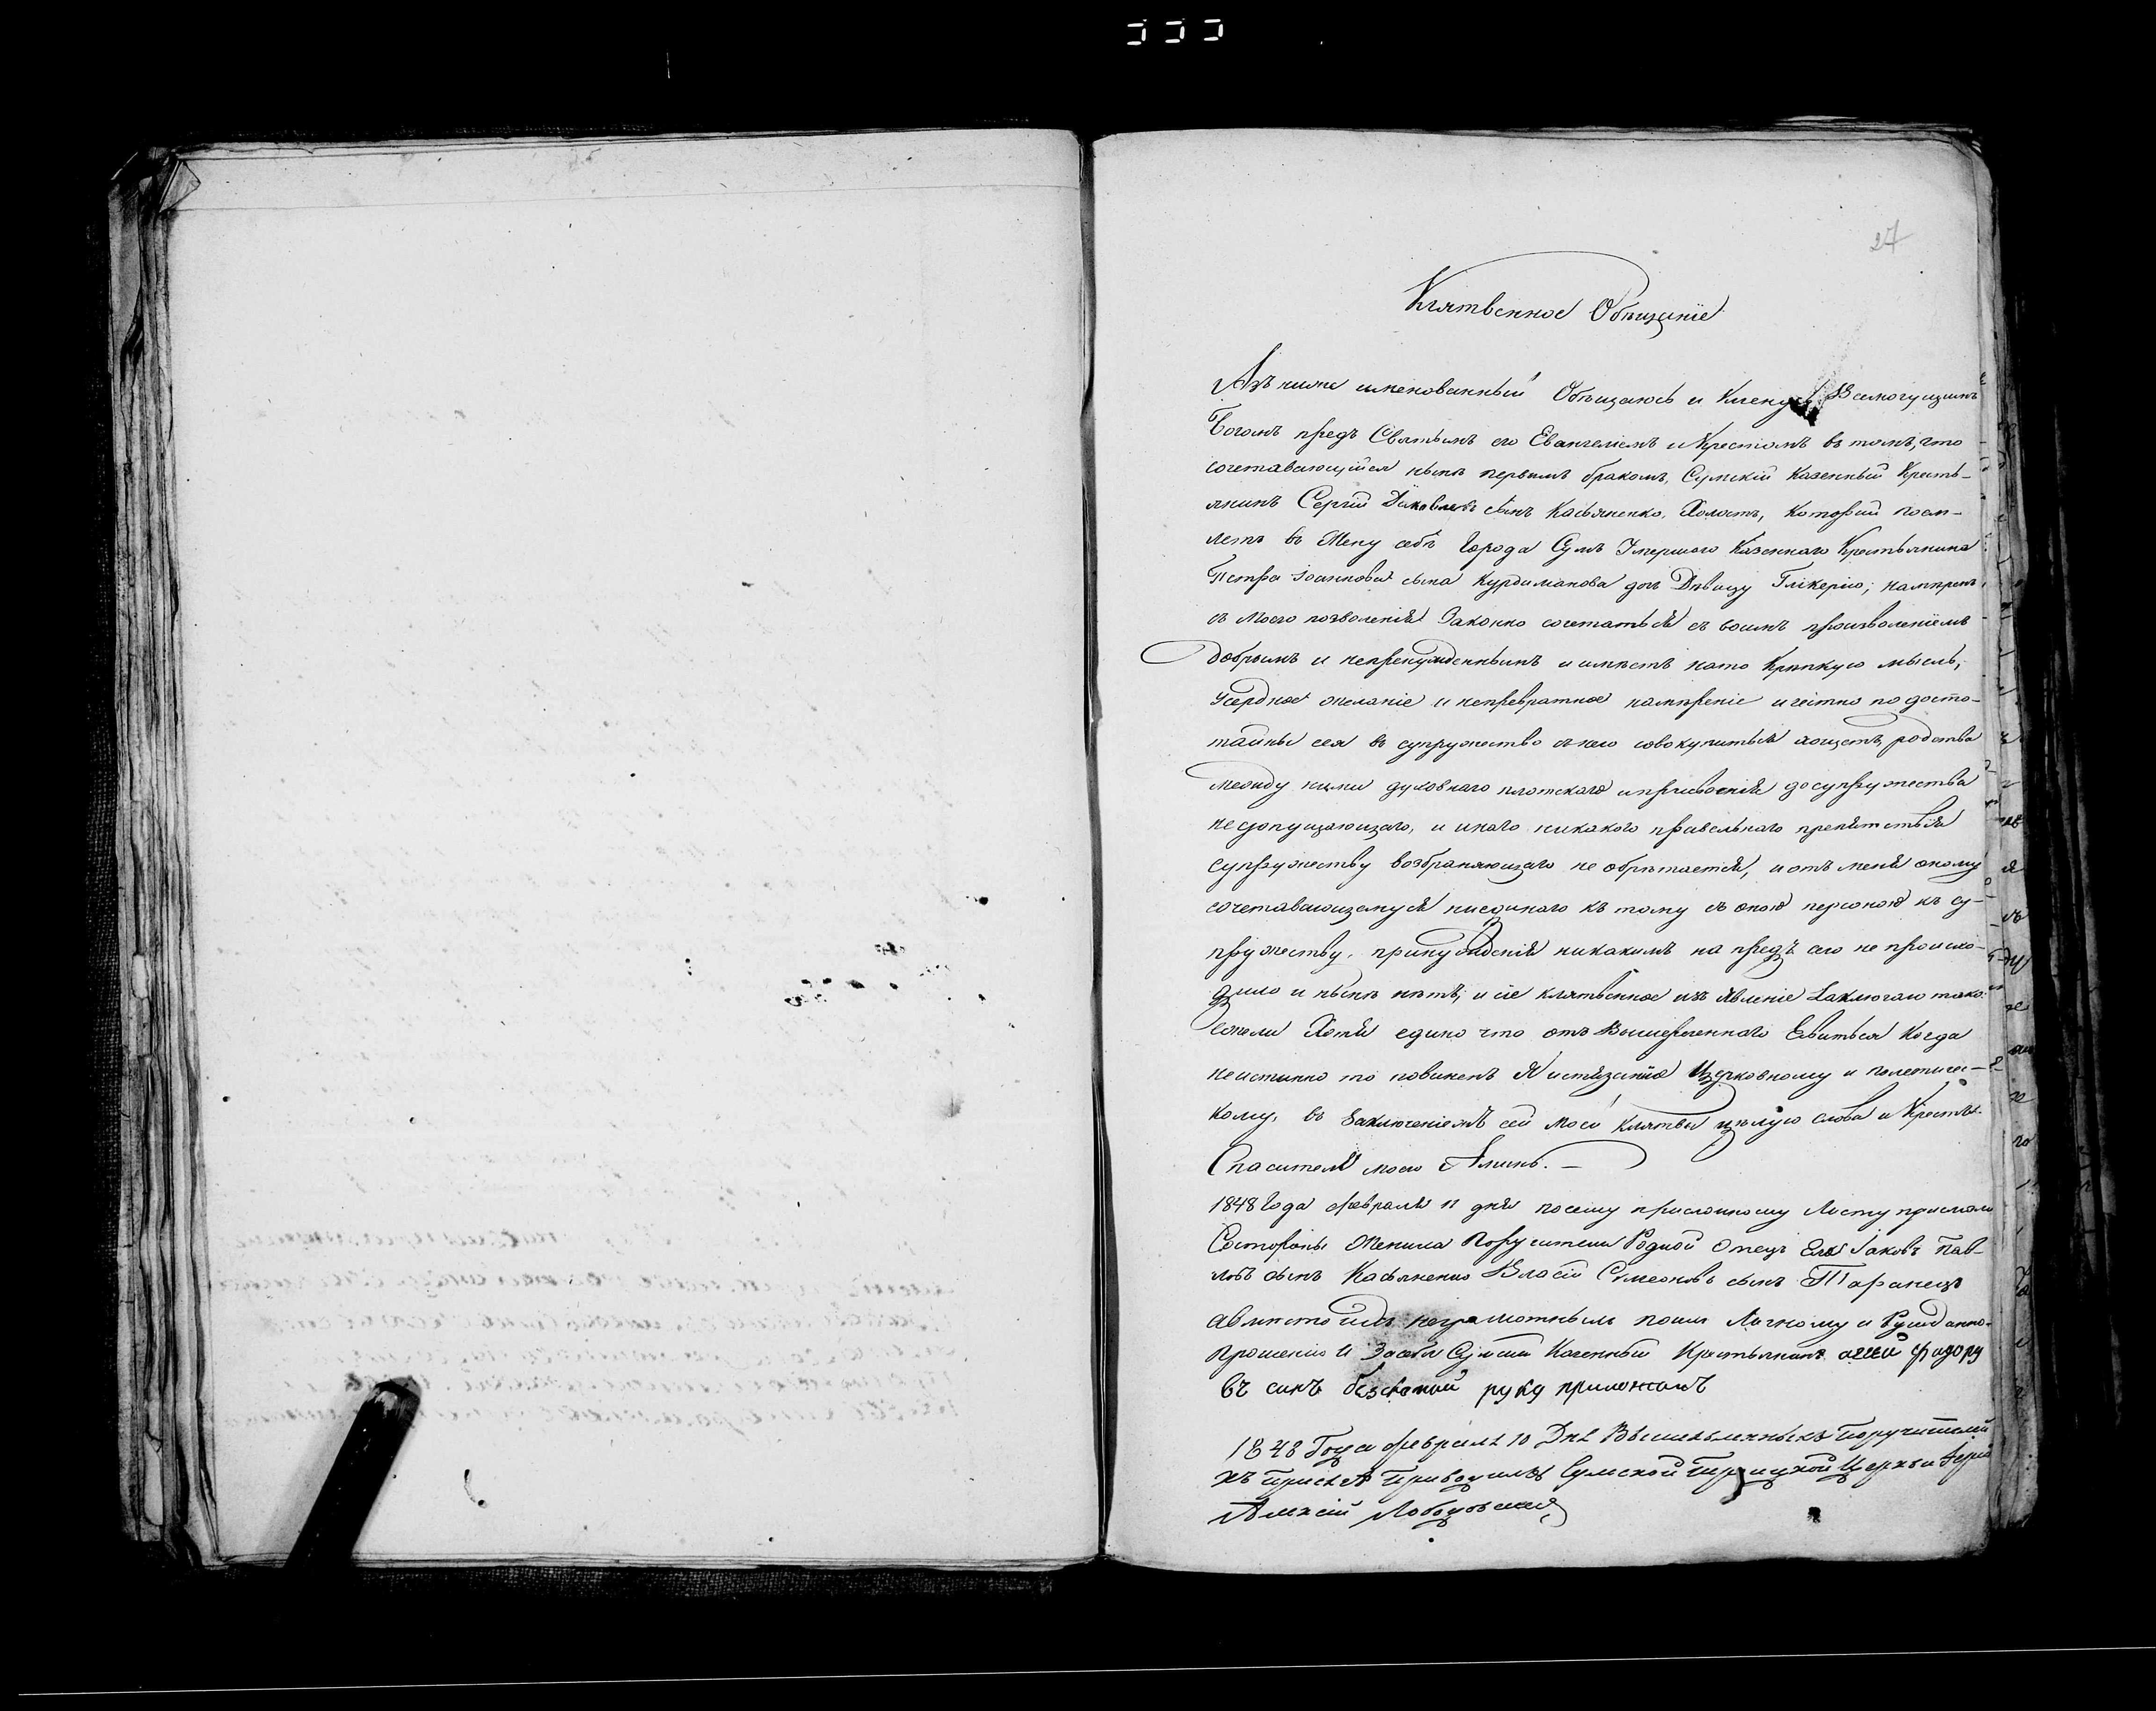 27
Клятвенное Обѣщаніе
Азъ ниже именованный Обѣщаюсь и Кленусь Всемогущимъ
Богомъ предъ Святымъ его Евангеліемъ и Крестомъ въ томъ, что
сочетавающійся нынѣ первымъ бракомъ, Сумскій Казенный Кресть-
янинъ Сергій Яковлевъ сынъ Касьяненко, Холостъ, Который поем-
летъ въ Жену себѣ города Сумъ Умершого Казеннаго Крестьянина
Петра Іоаннова сына Курдиманова доч Дѣвицу Гликерію; намѣренъ
съ Моего позволенія Законно сочетаться съ воимъ произволеніемъ
добрымъ и непренужденнымъ и имѣетъ нато Крѣпкую мысль,
Усердное желаніе и непревратное намѣреніе и чѣстно по досто-
тайны сея въ супружество съ нею совокупиться хощетъ, родства
между ними духовнаго плотскаго и присвоенія до супружества
недопущающаго, и инаго никакого правельнаго препятствія
Супружеству возбраняющаго не обрѣтается, и отъ меня оному
сочетавающемуся ниединаго къ тому съ оною персоною къ су-
пружеству, принужденія никакимъ на предъ сего не происхо-
дило и нынѣ нѣтъ, и сіе клятвенное изъявленіе Заключаю тако:
ежели Хотя едино что отъ Вышереченнаго Евиться Когда
неистинно то повиненъ Я истязанію Церковному и полетичес-
кому, въ Заключеніемъ сей Моей Клятвы цѣлую слова и Крестъ
Спасителя моего Аминь. —
1848 Года февраля 11 дня посему присяжному Листу присягали
Состороны Жениха Поручители Родной Отецъ Его Іаковъ Пав-
ловъ сынъ Касьяненко Власій Симеоновъ сынъ Таранецъ
авмѣсто ихъ неграмотныхъ поихъ Личному и Рукоданно-
Прошенію И Засебя Сумскій Казенный Крестьянинъ
въ сынъ руку приложилъ
1848 Года февраля 10 Дня Поручителей
къ Присягѣ Приводилъ Сумской Троицкой Церкви Іерей
Алексій